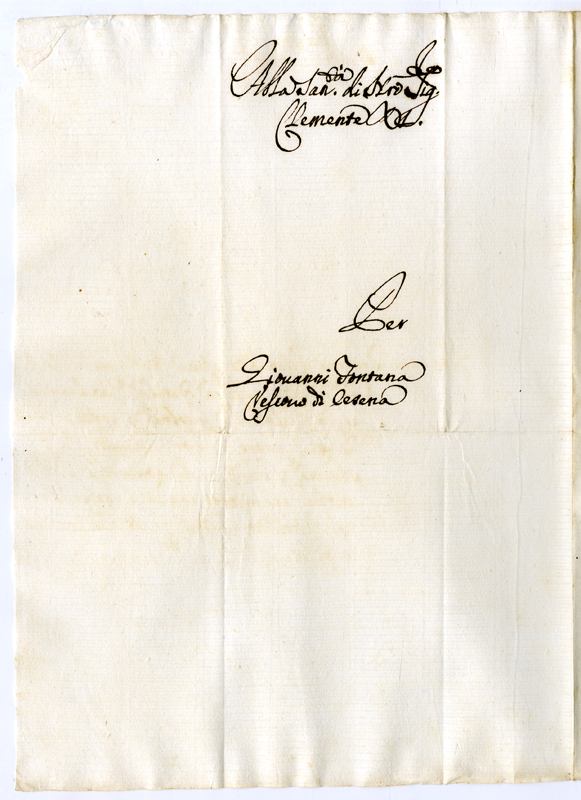 Alla San.tà di Nro Sig.re
Clemente XI.
Per
Giouanni Fontana
Vescouo di Cesena